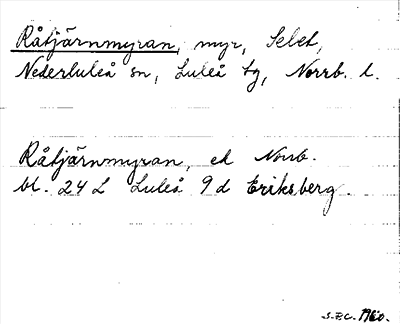 Råtjärnmyran, myr, Selet,
Nederluleå sn, Luleå tg, Norrb. l.
Råtjärnmyran, ek Norrb.
bl. 24 L Luleå 9 d Eriksberg.
S.E.C. 1960.